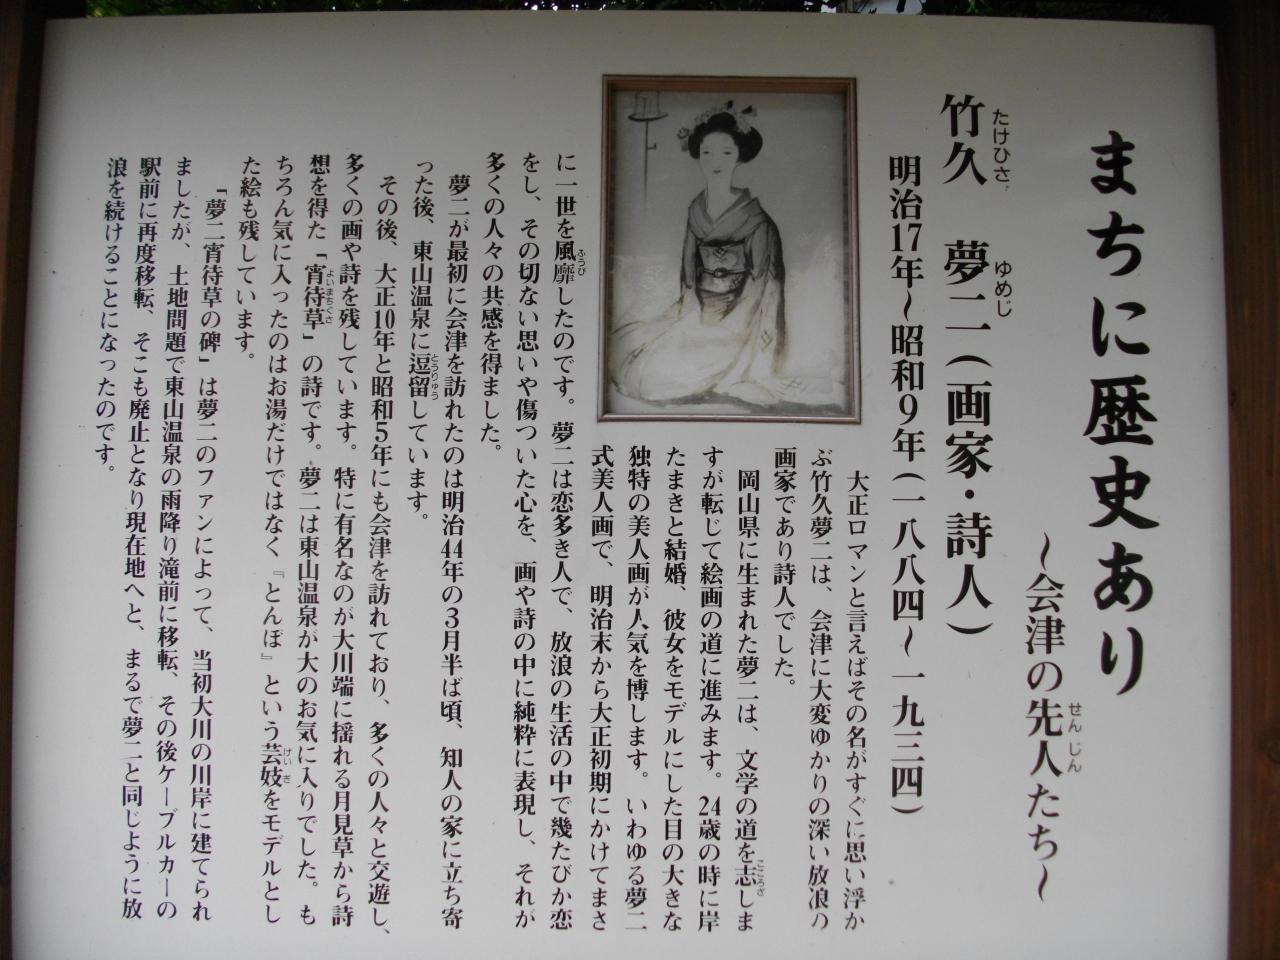 まちに歴史あり
～会津の先人たち～
せんじん
竹久 夢二（画家・詩人）
たけひさ ゆめじ
明治17年～昭和9年（一八八四～一九三四）
大正ロマンと言えばその名がすぐに思い浮か
ぶ竹久夢二は、会津に大変ゆかりの深い放浪の
画家であり詩人でした。
岡山県に生まれた夢二は、文学の道を志しま
こころざ
すが転じて絵画の道に進みます。24歳の時に岸
たまきと結婚、彼女をモデルにした目の大きな
独特の美人画が人気を博します。いわゆる夢二
式美人画で、明治末から大正初期にかけてまさ
に一世を風靡したのです。夢二は恋多き人で、放浪の生活の中で幾たびか恋
ふうび
をし、その切ない思いや傷ついた心を、画や詩の中に純粋に表現し、それが
多くの人々の共感を得ました。
夢二が最初に会津を訪れたのは明治44年の3月半ば頃、知人の家に立ち寄
った後、東山温泉に逗留しています。
とうりゅう
その後、大正10年と昭和5年にも会津を訪れており、多くの人々と交遊し、
多くの画や詩を残しています。特に有名なのが大川端に揺れる月見草から詩
想を得た「宵待草」の詩です。夢二は東山温泉が大のお気に入りでした。も
よいまちぐさ
ちろん気に入ったのはお湯だけではなく『とんぼ』という芸妓をモデルとし
げいぎ
た絵も残しています。
「夢二宵待草の碑」は夢二のファンによって、当初大川の川岸に建てられ
ましたが、土地問題で東山温泉の雨降り滝前に移転、その後ケーブルカーの
駅前に再度移転、そこも廃止となり現在地へと、まるで夢二と同じように放
浪を続けることになったのです。